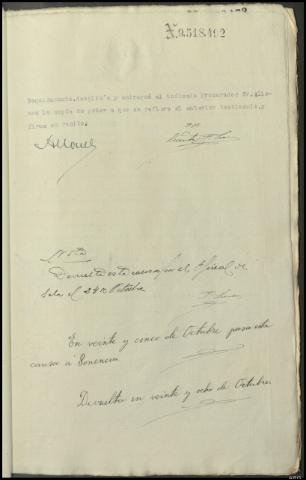 N.9.518.492
Seguidamente, desglosé y entregué al indicado Procurador Sr.
nes la copia de poder a que se refiere el anterior testimonio, y
firma su recibo.
Nota
Devuelta esta causa por el fiscal de
Sala el 24 de Octubre
En veinte y cinco de Octubre pasa esta
causa a Ponencia
Devuelta en veinte y ocho de Octubre